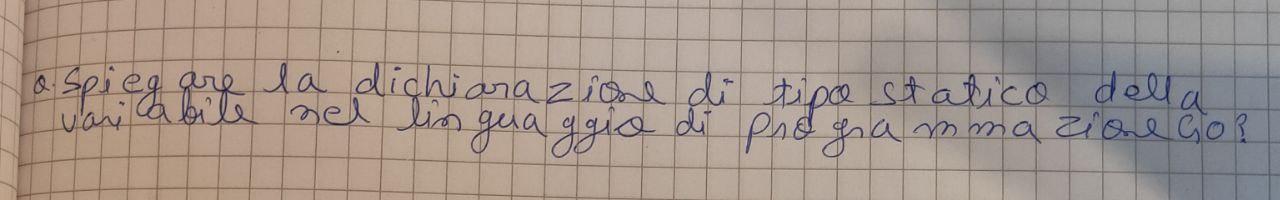 Q. Spiegare la dichiarazione di tipo statico della
variabile nel linguaggio di programmazione Go?